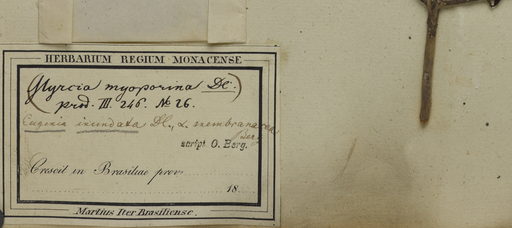 HERBARIUM REGIUM MONACENSE
(Myrcia myoporina DC.)
prd. III 246. No 26.
Eugenia inundata DC., α membranacea
Berg.
script. O. Berg.
Crescit in Brasiliae prov.
18
Martius Iter Brasiliense.